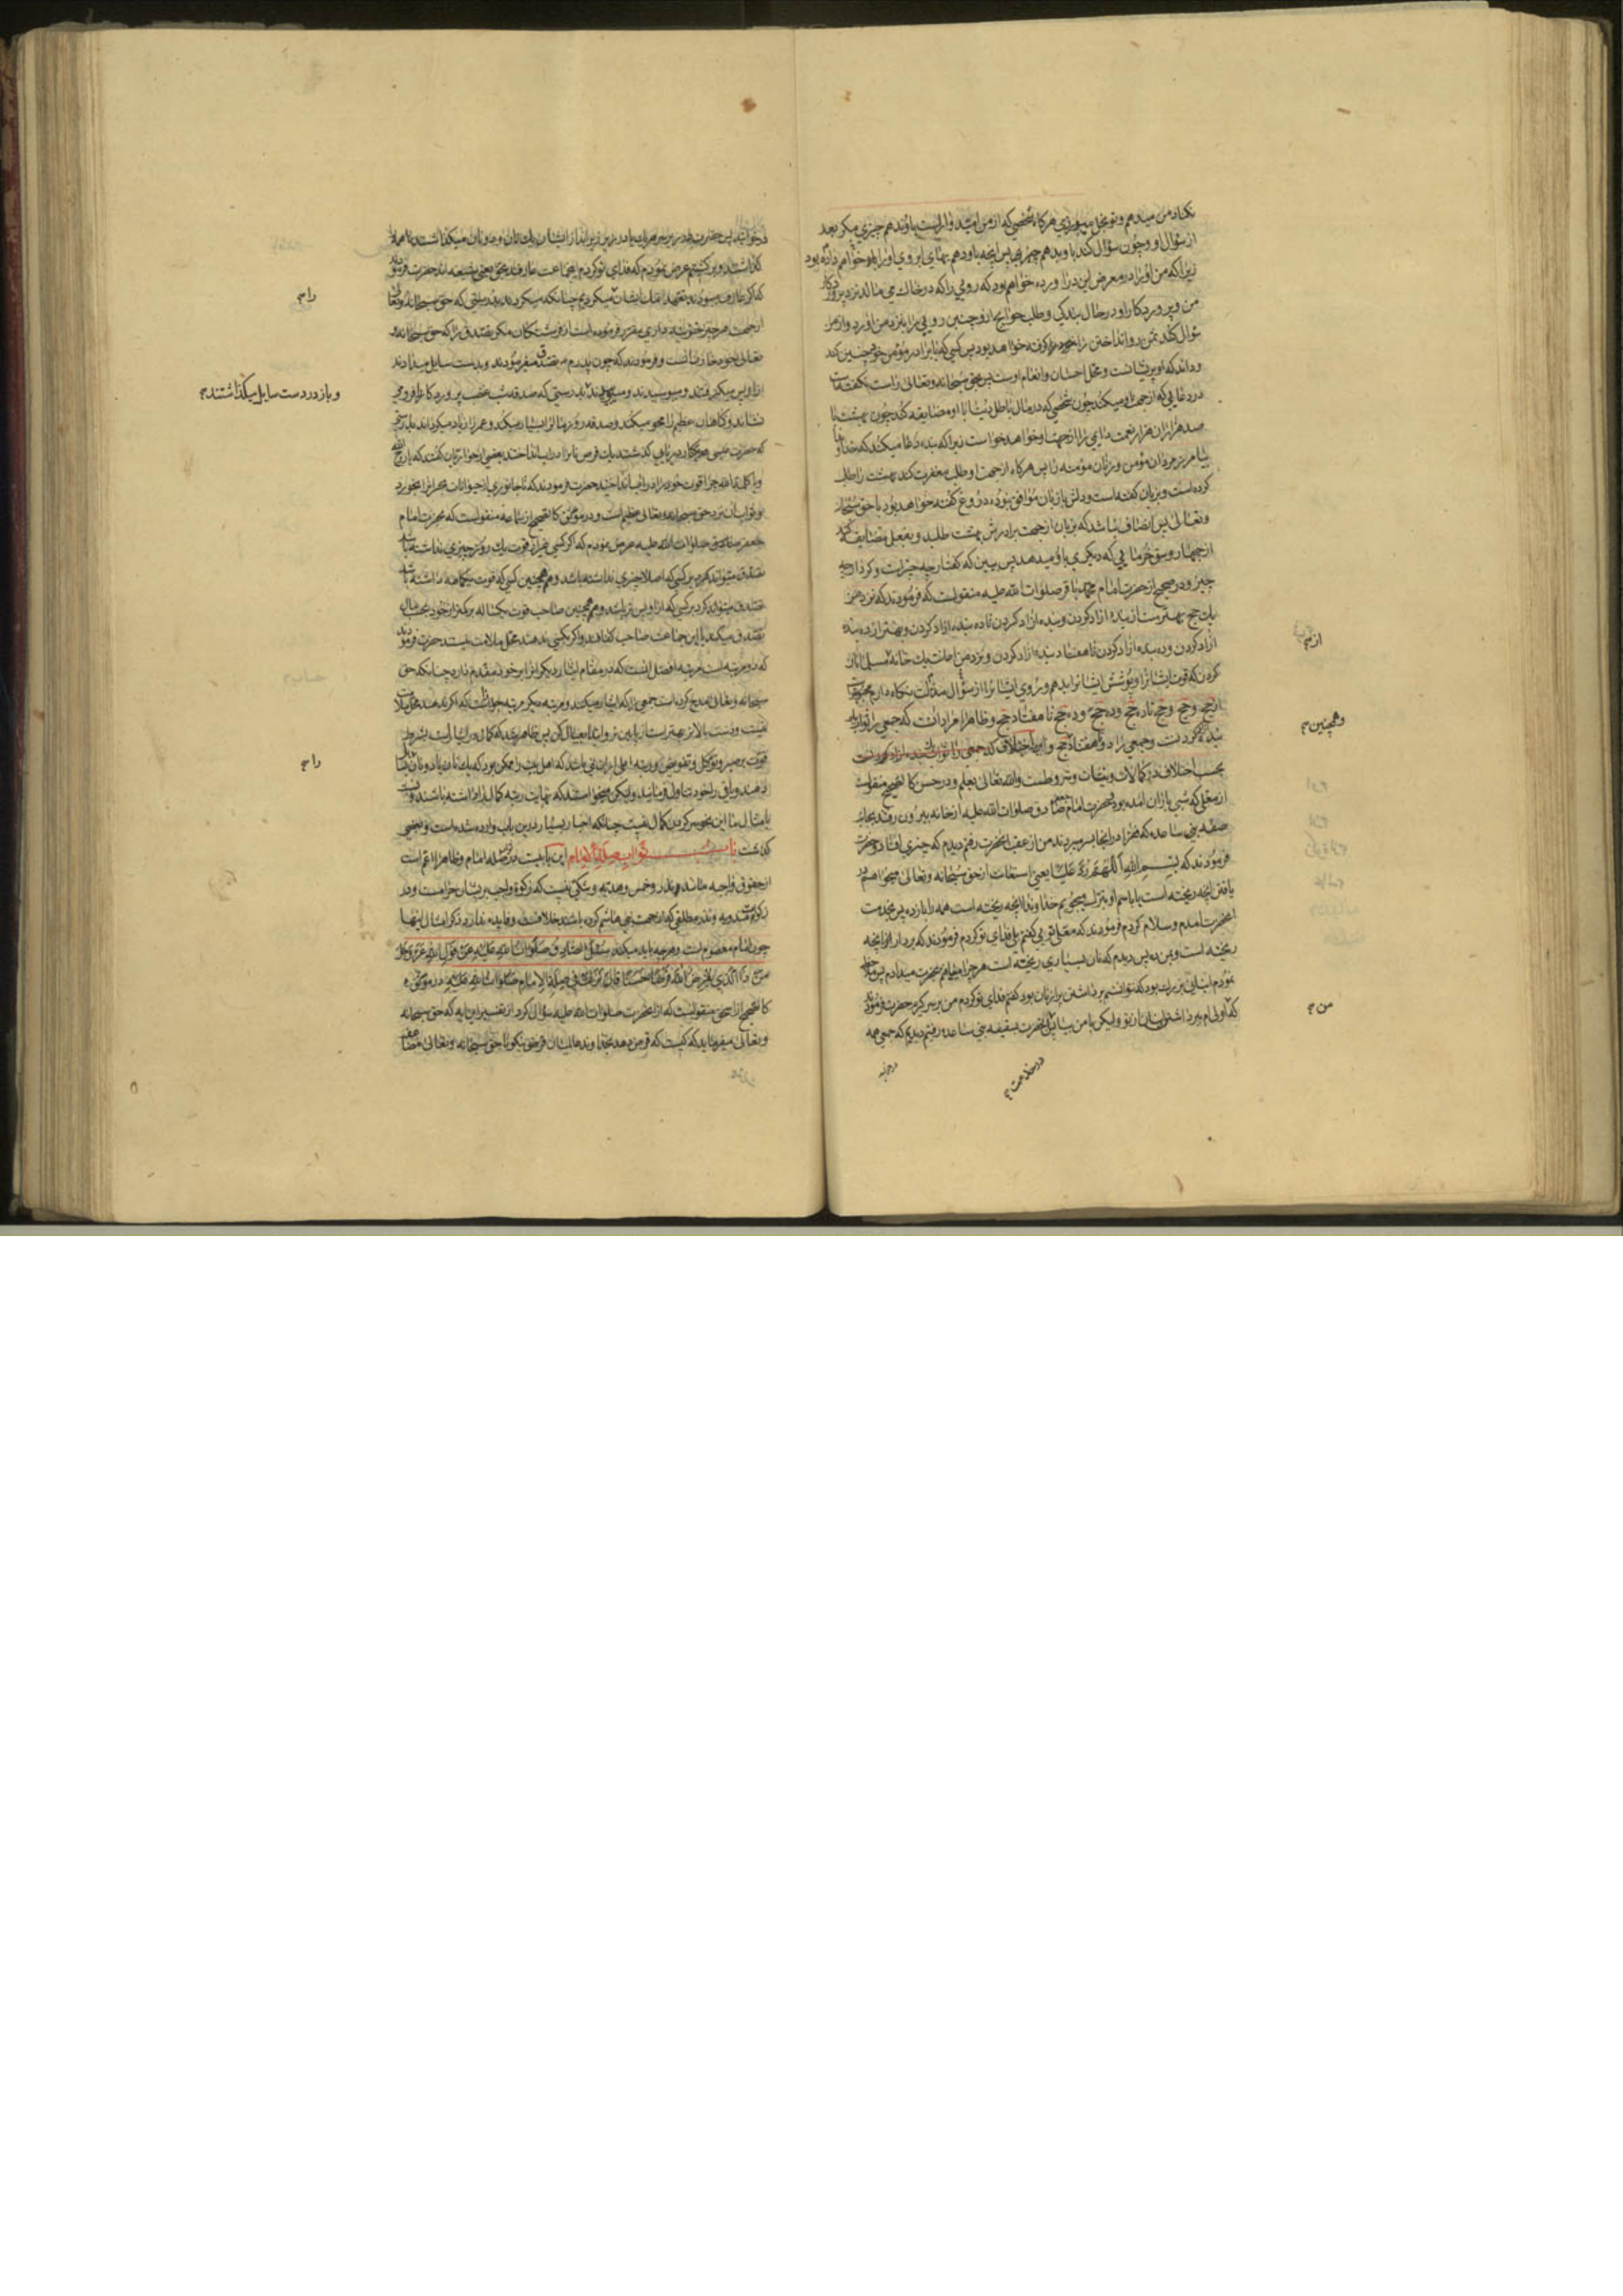 نکاه من میدهم و تو بخل میورزی هرکاه شخصی که از من امید واراست باو ندهم چیزی مکر بعد
از سؤال او و چون سؤال کند باو بدهم چیزی پس انچه باو دهم بهای ابروی او را باو خواهم داده بود
زیرا که من او را در معرض این در اورده خواهم بود که رویی را که در خاک می مالد نزد پروردکار
من و پروردکار او در حال بندکی و طلب حوایج از او چنین رویی را بنزد من اورد و از من
سؤال کند
و داند که او پریشانست و محل احسان و انعام اوست پس بحق سبحانه و تعالی راست نکفته است
در دعایی که از جهت او میکند چون شخصی که در مال باطل دنیا با او مضایقه کند چون بهشت با
صد هزاران هزار نعمت دایمی را از جهت او خواهد خواست زیرا که بنده دعا میکند که خداوندا
بیامرز مردان مؤمن و زنان مؤمنه را پس هرکاه از جهت او طلب مغفرت کند بهشت را طلب
کرده است و بزبان کفته است و دلش با زبان موافق نبوده دروغ کفته خواهد بود با حق سبحانه
و تعالی پس انصاف نباشد که بزبان از جهت برادرش بهشت طلبد و بفعل مضایقه کند
از چهار وسق خرمایی که دیکری باو میدهد پس ببین که کفتار چه چیز است و کردار چه
چیز و در صحیح از حضرت امام محمد باقر صلوات الله علیه منقولست که فرمودند که نزد من
یک حج بهتر است از بنده ازاد کردن و بنده ازاد کردن تا ده بنده ازاد کردن و بهتر از ده بنده
ازاد کردن و ده بنده ازاد کردن تا هفتاد بنده ازاد کردن و نزد من اعانت یک خانه مسلمانان
کردن که قوت ایشانرا و پوشش ایشانرا بدهم و روی ایشانرا از سؤال و مذلت نکاه دارم محبوبتر است
از حج و حج و حج تا ده حج و ده حج و ده حج تا هفتاد حج و ظاهرا مراد انست که جمعی را ثواب ده
بنده ازاد کردنست و جمعی را ده تا هفتاد حج و این اختلاف
بحسب اختلاف در کمالات و نیات و شروطست والله تعالی یعلم و در حسن کالصحیح منقولست
از معلی که شبی باران امده بود حضرت امام جعفر صادق صلوات الله علیه از خانه بیرون رفتند بجانب
صفه بنی ساعده که فقرا در انجا بسر میبردند من از عقب انحضرت رفتم دیدم که چیزی افتاد و حضرت
فرمودند که بسم الله اللهم رد علینا یعنی استعانت از حق سبحانه و تعالی میخواهم در
یافتن انچه ریخته است یا باسم او تبرک میجویم خداوندا انچه ریخته است همه را باز ده پس بخدمت
انحضرت امدم و سلام کردم فرمودند که معلی تویی کفتم بلی فدای تو کردم فرمودند که بردار انچه
ریخته است و بمن ده پس دیدم که نان بسیاری ریخته است هر چه را مییافتم بحضرت میدادم پس ملاحظه
نمودم انبانی بزرک بود که نتوانستم برداشتن پر از نان بود کفتم فدای تو کردم من بر سر کیرم حضرت فرمودند
که من اولی ام ببرداشتن انبان از تو ولیکن با من بیا پس با انحضرت بسقیفه بنی ساعده رفتم دیدم که جمعی همه
درخوابند
از ؟
و همچنین ؟
من ؟
در خدمت ؟
درخوابند پس حضرت در زیر سر هر یک یا در زیر زیرانداز ایشان یک نان و دو نان میکذاشتند تا همه را
کذاشتند و برکشتیم عرض نمودم که فدای تو کردم این جماعت عارفند بحق یعنی شیعه اند حضرت فرمودند
که اکر عارف میبودند
از جهت هر چیز خزینه داری مقرر فرموده است از فرشتکان مکر تصدق را که حق سبحانه و
تعالی خود خازن انست و فرمودند که چون پدرم تصدق میفرمودند و بدست سایل میدادند
از او پس میکرفتند و میبوسیدند و میبوییدند بدرستی که صدقه شب غضب پروردکار را فرو می
نشاند و کناهان عظیم را محو میکند و صدقه روز مال را بسیار میکند و عمر را زیاد میکرداند بدرستی
که حضرت عیسی بکنار دریایی کذشتند یک قرص نانرا در اب انداختند بعضی از حواریان کفتند که یا روح الله
و یا کلمة الله چرا قوت خود را در اب انداختید حضرت فرمودند که تا جانوری از حیوانات بحر انرا بخورد
و ثواب ان نزد حق سبحانه و تعالی عظیم است و در موثق کالصحیح از سماعه منقولست که بحضرت امام
جعفر صادق صلوات الله علیه عرض نمودم که اکر کسی بغیر از قوت یک روز چیزی نداشته باشد
تصدق میتواند کرد بر کسی که اصلا چیزی نداشته باشد و همچنین کسی که قوت یکماهه داشته باشد
تصدق میتواند کرد بر کسی که از او پس تر باشد و همچنین صاحب قوت یکساله بر کمتر از خود
تصدق میکند یا این جماعت صاحب کفافند و اکر بکسی ندهند محل ملامت نیستند حضرت فرمودند
که دو مرتبه است مرتبه افضل انست که در مقام ایثار دیکرانرا بر خود مقدم دارد چنانکه حق
سبحانه و تعالی مدح کرده است جمعی را که ایثار میکنند و مرتبه دیکر
نیست و دست بالا بهتر است از پایین تر و ابتدا بعیال کن پس ظاهر شد که کمال در ایثار است بشرط
قوت بر صبر و توکل و تفویض
دهند و باقی را خود تناول فرمایند ولیکن میخواستند که نهایت رتبه کمال را داشته باشند
چنانکه اخبار بسیار در این باب وارد شده است و بعضی
کذشت باب ثواب صلة الامام این بابیست در ثواب صله امام و ظاهرا اعم است
از حقوق واجبه مانند نذر و خمس و هدیه و شکی نیست که زکوة واجب بر ایشان حرامست و در
زکوة مندوبه و نذر مطلقی که از جهت بنی هاشم کرده باشند خلافست و فایده ندارد ذکر امثال اینها
چون امام معصوم است و هر چه باید میکند سئل الصادق صلوات الله علیه عن قول الله عز و جل
من ذا الذی یقرض الله قرضا حسنا قال نزلت فی صلة الامام صلوات الله علیه در موثق
کالصحیح از اسحق منقولست که از انحضرت صلوات الله علیه سؤال کرد از تفسیر این ایه که حق سبحانه
و تعالی میفرماید که کیست که قرض دهد بخداوند عالمیان قرضی نیکو تا حق سبحانه و تعالی
را ؟
و باز در دست سایل میکذاشتند ؟
را ؟